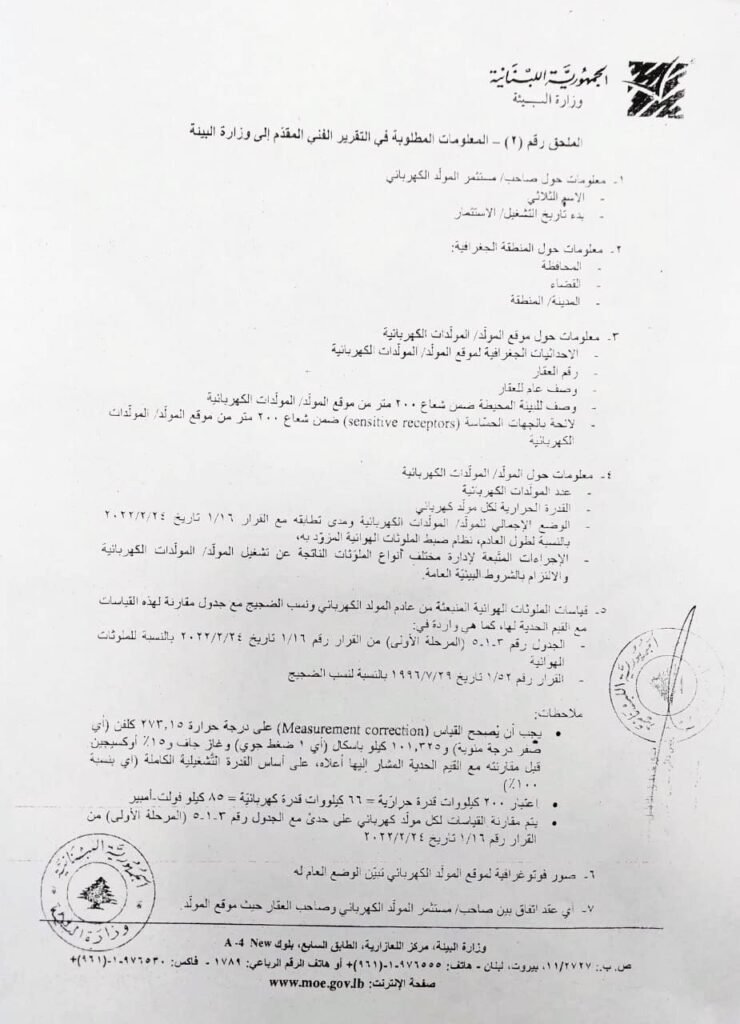 الجمهوريّة اللبنانية
وزارة البيئة
الملحق رقم (٢) – المعلومات المطلوبة في التقرير الفني المقدّم إلى وزارة البيئة
١- معلومات حول صاحب/ مستثمر المولّد الكهربائي
- الاسم الثلاثي
- بدء تأريخ التشغيل/ الاستثمار
٢- معلومات حول المنطقة الجغرافية:
- المحافظة
- القضاء
- المدينة/ المنطقة
٣- معلومات حول موقع المولّد/ المولّدات الكهربائية
- الاحداثيات الجغرافية لموقع المولّد/ المولّدات الكهربائية
- رقم العقار
- وصف عام للعقار
- وصف للبيئة المحيطة ضمن شعاع ٢٠٠ متر من موقع المولّد/ المولّدات الكهربائية
- لائحة بالجهات الحسّاسة (sensitive receptors) ضمن شعاع ٢٠٠ متر من موقع المولّد/ المولّدات
الكهربائية
٤- معلومات حول المولّد/ المولّدات الكهربائية
- عدد المولّدات الكهربائية
- القدرة الحرارية لكل مولّد كهربائي
- الوضع الإجمالي للمولّد/ المولّدات الكهربائية ومدى تطابقه مع القرار ١/١٦ تاريخ ٢٠٢٢/٢/٢٤
بالنسبة لطول العادم، نظام ضبط الملوثات الهوائية المزوّد به،
- الإجراءات المتّبعة لإدارة مختلف أنواع الملوّثات الناتجة عن تشغيل المولّد/ المولّدات الكهربائية
والالتزام بالشروط البيئيّة العامة.
٥- قياسات الملوثات الهوائية المنبعثة من عادم المولد الكهربائي ونسب الضجيج مع جدول مقارنة لهذه القياسات
مع القيم الحدية لها، كما هي واردة في:
- الجدول رقم ٣-١-٥ (المرحلة الأولى) من القرار رقم ١/١٦ تاريخ ٢٠٢٢/٢/٢٤ بالنسبة للملوثات
الهوائية
- القرار رقم ١/٥٢ تاريخ ١٩٩٦/٧/٢٩ بالنسبة لنسب الضجيج
ملاحظات:
• يجب أن يُصحح القياس (Measurement correction) على درجة حرارة ٢٧٣,١٥ كلفن (أي
صفر درجة مئوية) و١٠١,٣٢٥ كيلو باسكال (أي ١ ضغط جوي) وغاز جاف و١٥٪ أوكسيجين
قبل مقارنته مع القيم الحدية المشار إليها أعلاه، على أساس القدرة التّشغيلية الكاملة (اي بنسبة
١٠٠٪)
• اعتبار ٢٠٠ كيلووات قدرة حراريّة = ٦٦ كيلووات قدرة كهربائيّة = ٨٥ كيلو فولت-أمبير
• يتم مقارنة القياسات لكل مولّد كهربائي على حدىً مع الجدول رقم ٣-١-٥ (المرحلة الأولى) من
القرار رقم ١/١٦ تاريخ ٢٠٢٢/٢/٢٤
٦- صور فوتوغرافية لموقع المولّد الكهربائي تبيّن الوضع العام له
٧- أي عقد اتفاق بين صاحب/ مستثمر المولّد الكهربائي وصاحب العقار حيث موقع المولّد.
الجمهوريّة اللبنانيّة
وزارة البيئة
وزارة البيئة، مركز اللعازارية، الطابق السابع، بلوك A-4 New
ص.ب.: ١١/٢٧٢٧، بيروت، لبنان - هاتف: ٩٧٦٥٥٥-١-(٩٦١)+ أو هاتف الرقم الرباعي: ١٧٨٩ - فاكس: ٩٧٦٥٣٠-١-(٩٦١)+
صفحة الإنترنت: www.moe.gov.lb